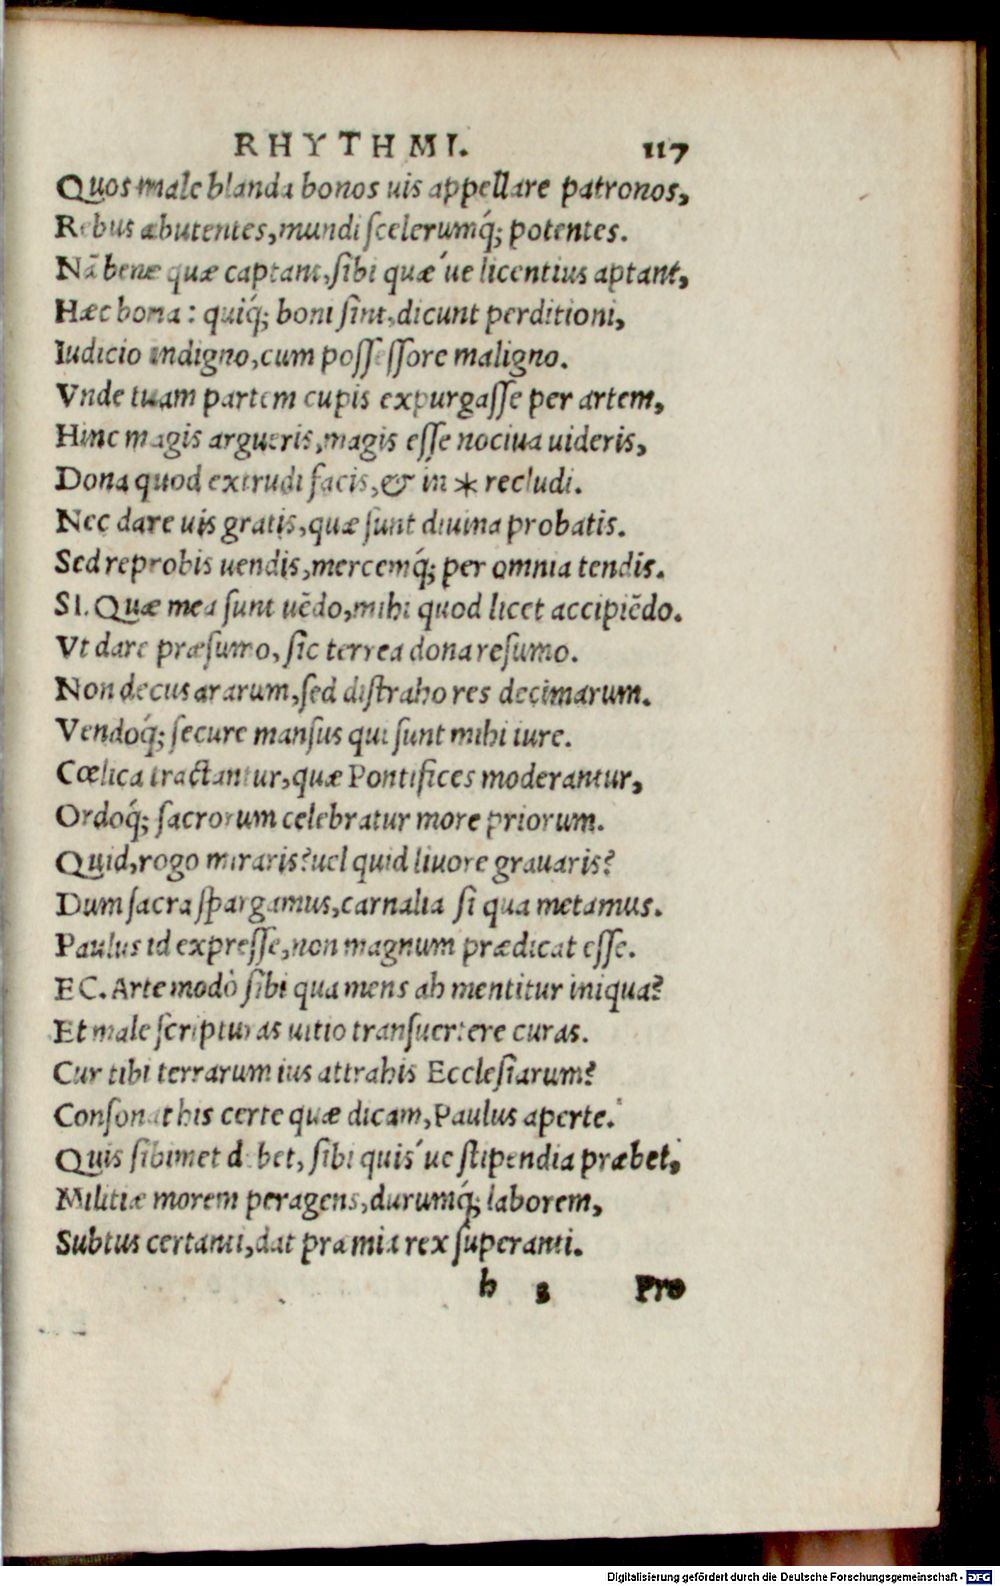 RHYTHMI. 117
Quos male blanda bonos uis appellare patronos,
Rebus abutentes, mundi scelerumq́; potentes.
Nā bene quæ captant, sibi quæ´ue licentius aptant,
Hæc bona: quiq́; boni sint, dicunt perditioni,
Iudicio indigno, cum possessore maligno.
Vnde tuam partem cupis expurgasse per artem,
Hinc magis argueris, magis esse nociua uideris,
Dona quod extrudi facis, & in * recludi.
Nec dare uis gratis, quæ sunt diuina probatis.
Sed reprobis uendis, mercemq́; per omnia tendis.
SI. Quæ mea sunt uēdo, mihi quod licet accipiēdo.
Vt dare præsumo, sic terrea dona resumo.
Non decus ararum, sed distraho res decimarum.
Vendoq́; secure mansus qui sunt mihi iure.
Cœlica tractantur, quæ Pontifices moderantur,
Ordoq́; sacrorum celebratur more priorum.
Quid, rogo miraris? uel quid liuore grauaris?
Dum sacra spargamus, carnalia si qua metamus.
Paulus id expresse, non magnum prædicat esse.
EC. Arte modò sibi qua mens ah mentitur iniqua?
Et male scripturas uitio transuertere curas.
Cur tibi terrarum ius attrahis Ecclesiarum?
Consonat his certe quæ dicam, Paulus aperte.
Quis sibimet debet, sibi quis´ue stipendia præbet,
Militiæ morem peragens, durumq́; laborem,
Subtus certanti, dat præmia rex superanti.
h 3 Pro
Digitalisierung gefördert durch die Deutsche Forschungsgemeinschaft - DFG